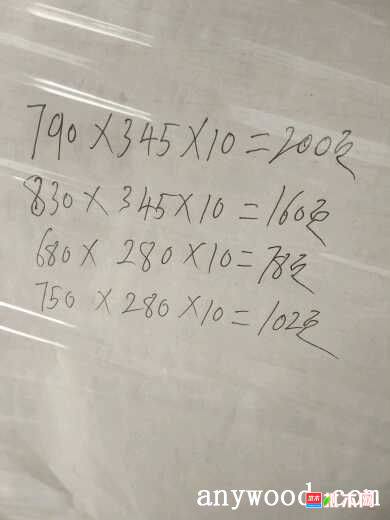 790×345×10=200包
830×345×10=160包
680×280×10=78包
750×280×10=102包
anywood.com